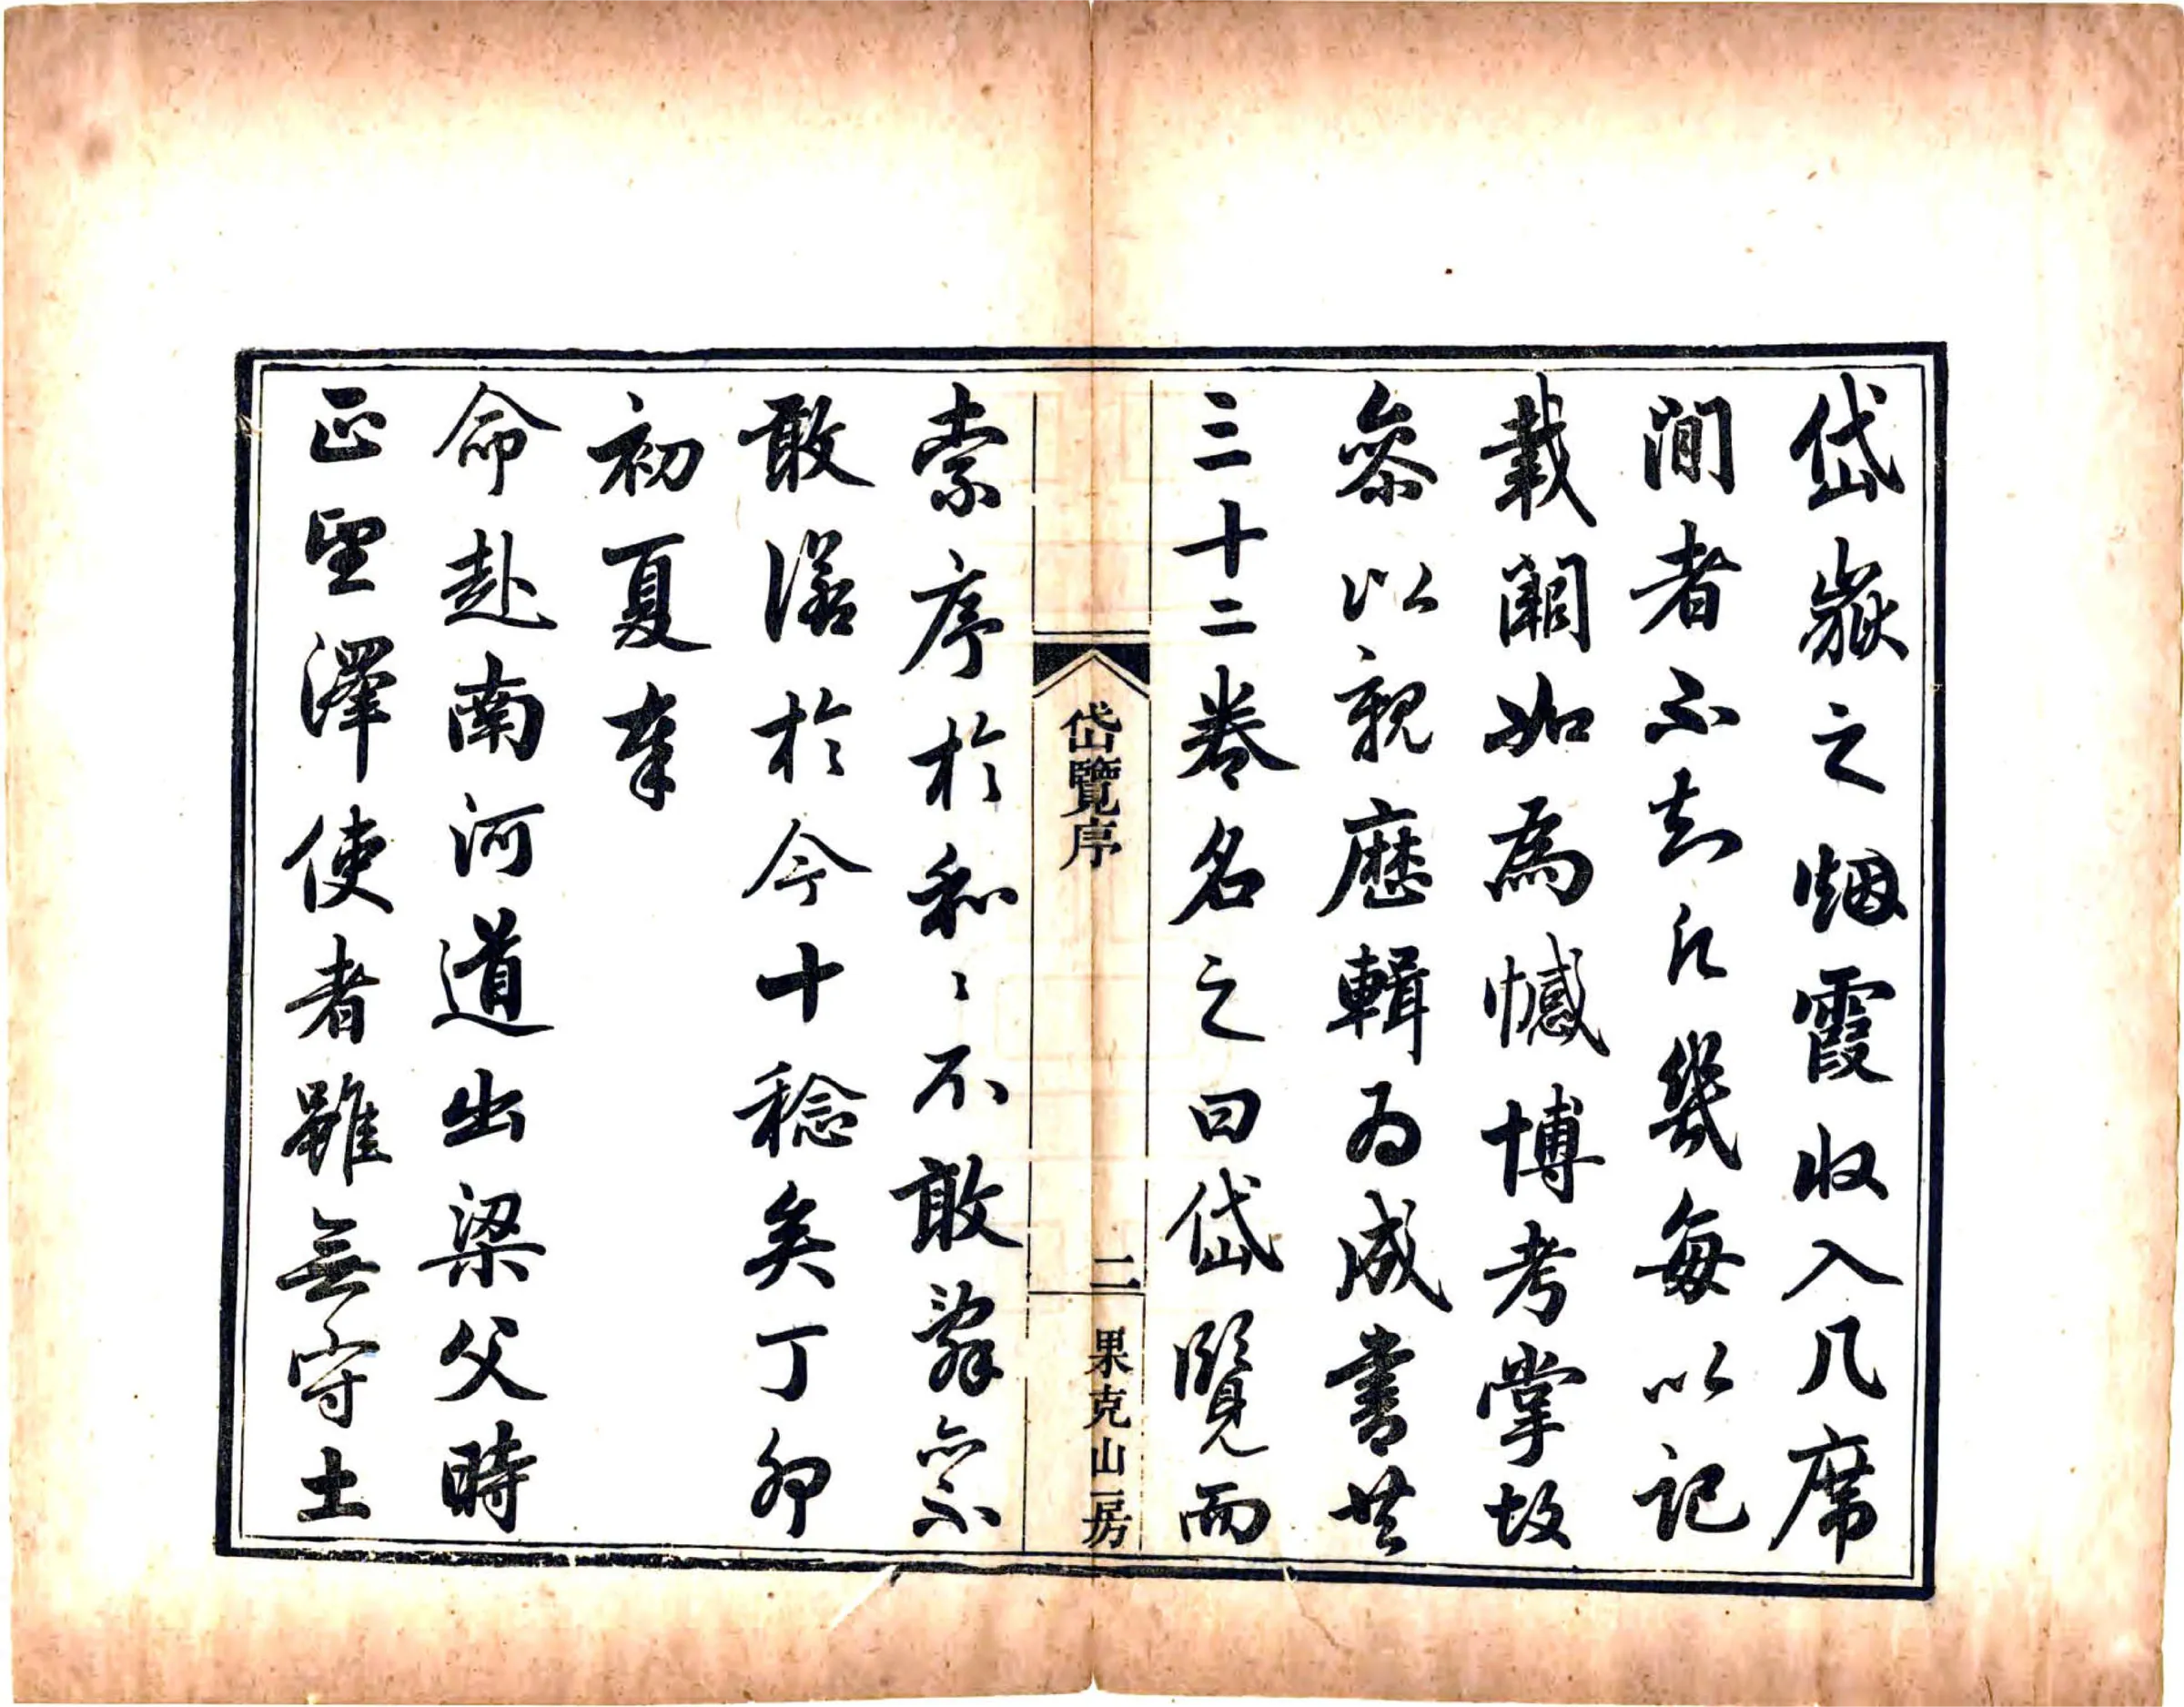 岱嶽之烟霞收入几席
間者不知凡幾每以記
載闕如為憾博考掌故
叅以親歷輯为成書共
三十二卷名之曰岱覽而
岱覽序
二
果克山房
索序於和〻不敢辭亦不
敢諾於今十稔矣丁卯
初夏奉
命赴南河道出梁父時
正望澤使者雖無守土